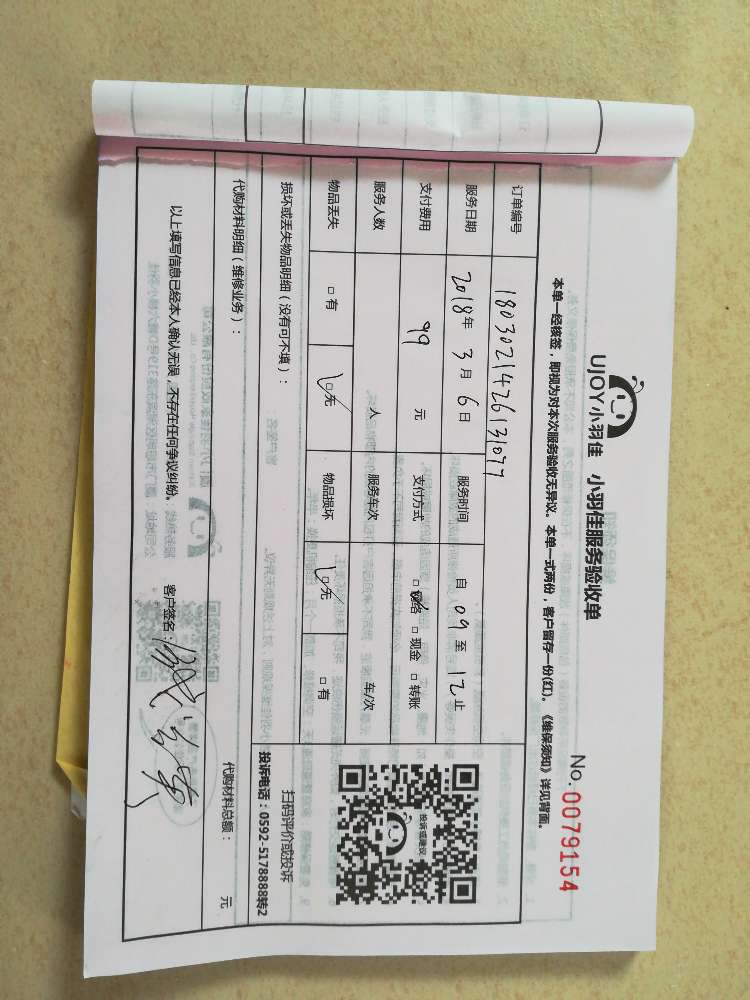 UJOY小羽佳 小羽佳服务验收单
No. 0079154
本单一经核签，即视为对本次服务验收无异议。本单一式两份，客户留存一份(红)。《维保须知》详见背面。
订单编号 1803021426131077
服务日期 2018年 3月 6日 服务时间 自 09 至 12 止
支付费用 99 元 支付方式 □网络 □现金 □转账
服务人数 人 服务车次 车/次
物品丢失 □有 □无 物品损坏 □无 □有
投诉或建议
扫码评价或投诉
投诉电话：0592-5178888转2
损坏或丢失物品明细（没有可不填）：
代购材料明细（维修业务）： 代购材料总额： 元
以上填写信息已经本人确认无误，不存在任何争议纠纷。 客户签名：